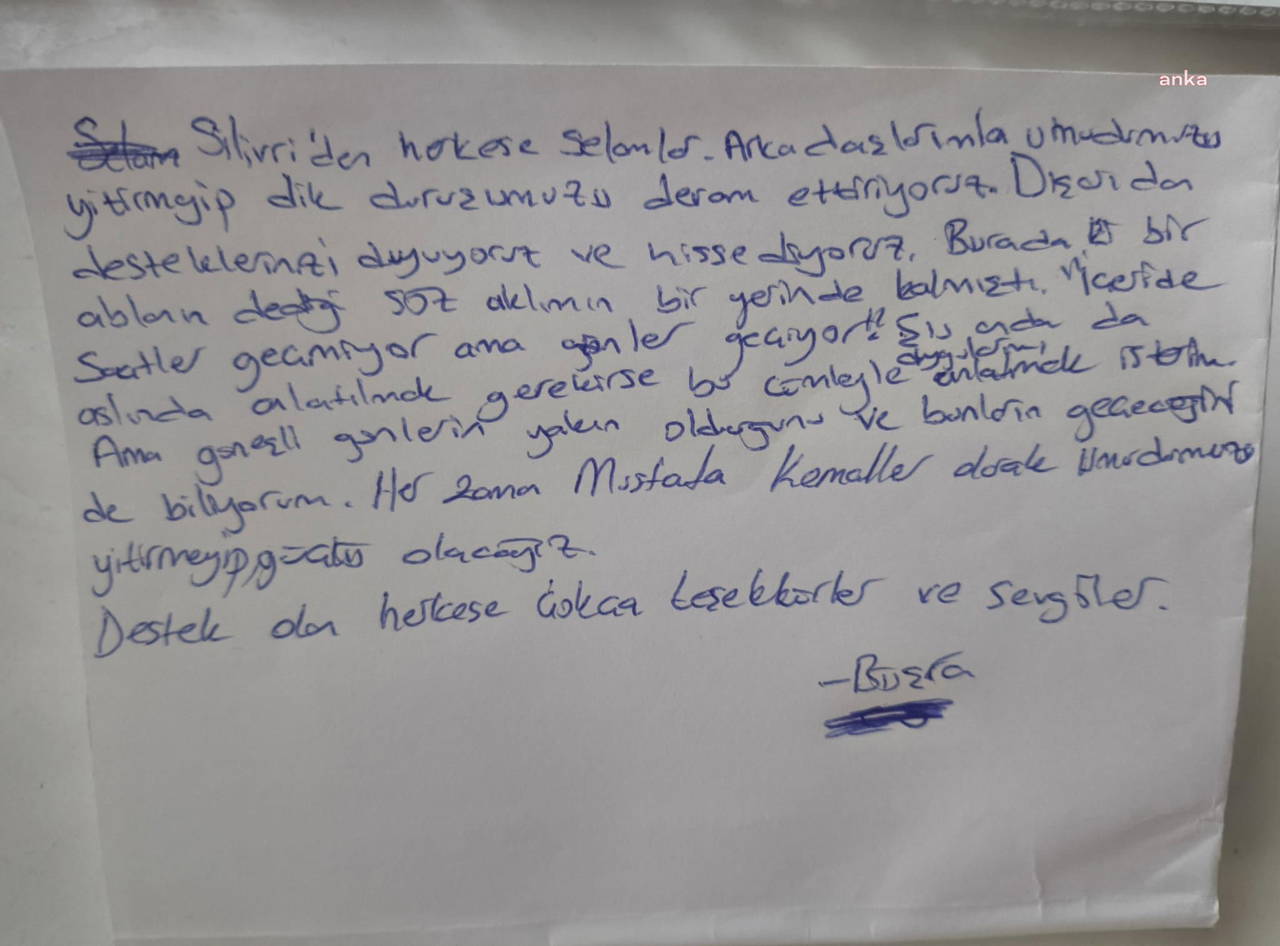 anka
Silivri'den herkese selamlar. Arkadaşlarımla umudumuzu
yitirmeyip dik duruşumuzu devam ettiriyoruz. Dışarıdan
desteklerinizi duyuyoruz ve hissediyoruz. Burada bir
ablanın dediği söz aklımın bir yerinde kalmıştı. "İçeride
Saatler geçmiyor ama günler geçiyor" Şu anda da
aslında anlatılmak gerekirse bu cümleyle duygularımı anlatmak isterim.
Ama güneşli günlerin yakın olduğunu ve bunların geçeceğini
de biliyorum. Her zaman Mustafa Kemaller olarak Umudumuzu
yitirmeyip, güçlü olacağız.
Destek olan herkese çokça teşekkürler ve sevgiler.
-Büşra